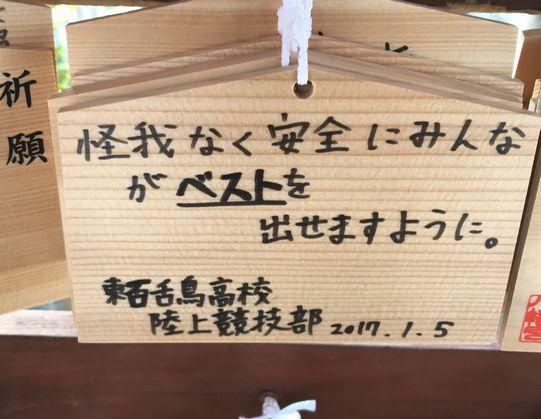 祈願
怪我なく安全にみんな
がベストを
出せますように。
東百舌鳥高校
陸上競技部 2017.1.5